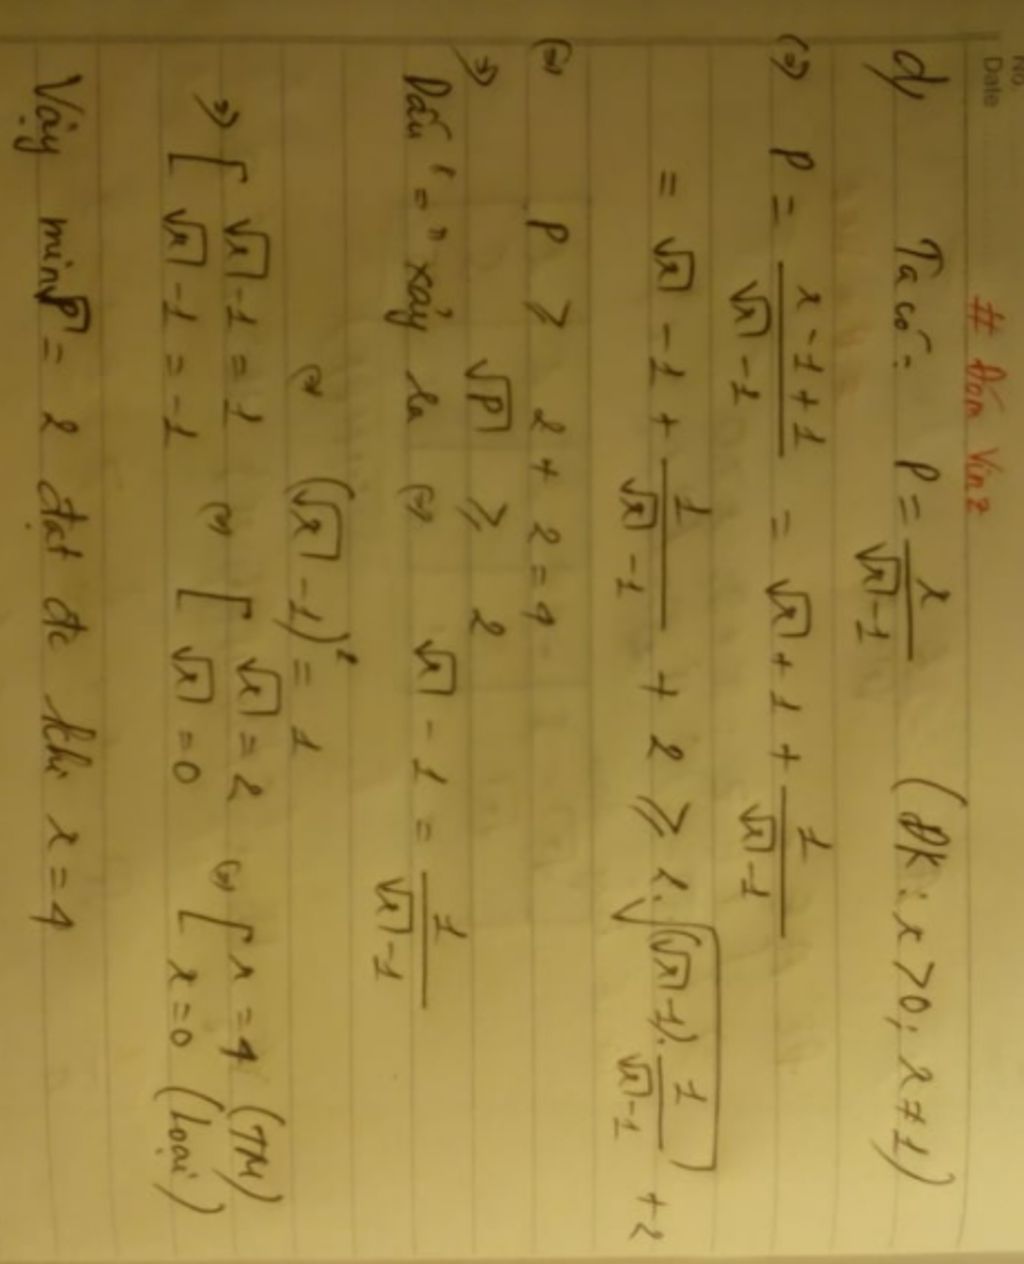 No.
Date
# Đóm Vinz
d, Ta có: P = x/(√x - 1) (ĐK: x > 0; x ≠ 1)
(=) P = (x - 1 + 1)/(√x - 1) = √x + 1 + 1/(√x - 1)
= √x - 1 + 1/(√x - 1) + 2 ≥ 2.√((√x - 1).1/(√x - 1)) + 2
(=) P ≥ 2 + 2 = 4
=) √P ≥ 2
Dấu "=" xảy ra (=) √x - 1 = 1/(√x - 1)
(=) (√x - 1)² = 1
=) [ √x - 1 = 1 (=) [ √x = 2 (=) [ x = 4 (TM)
[ √x - 1 = -1 [ √x = 0 [ x = 0 (loại)
Vậy min√P = 2 đạt đc khi x = 4